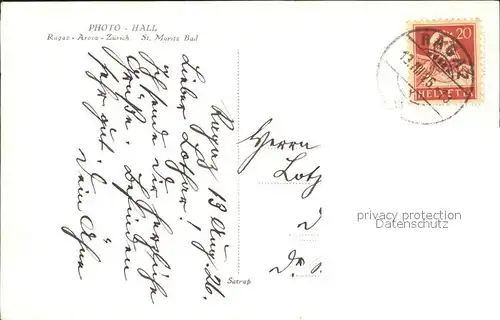 PHOTO - HALL
Ragaz - Arosa - Zürich St. Moritz Bad
Ragaz, 13. Aug. 26.
Lieber Lothar!
Ich sende dir herzliche
Grüße. Befinden
sehr gut.
Dein
Herrn
Loth
d
Dr.
Satrap
20
HELVETIA
RAGAZ
privacy protection
Datenschutz